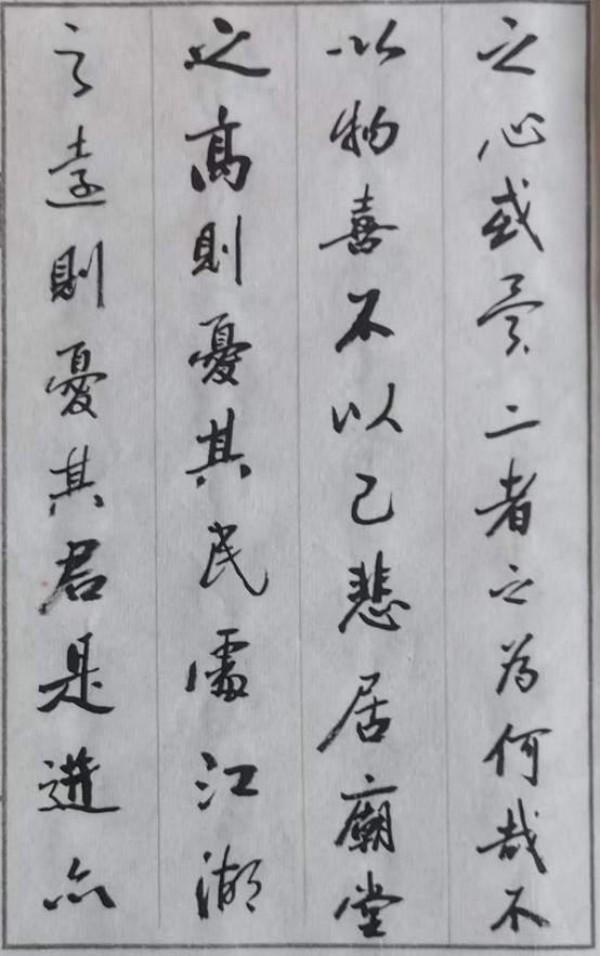 之心或異二者之為何哉不
以物喜不以己悲居廟堂
之高則憂其民處江湖
之遠則憂其君是進亦